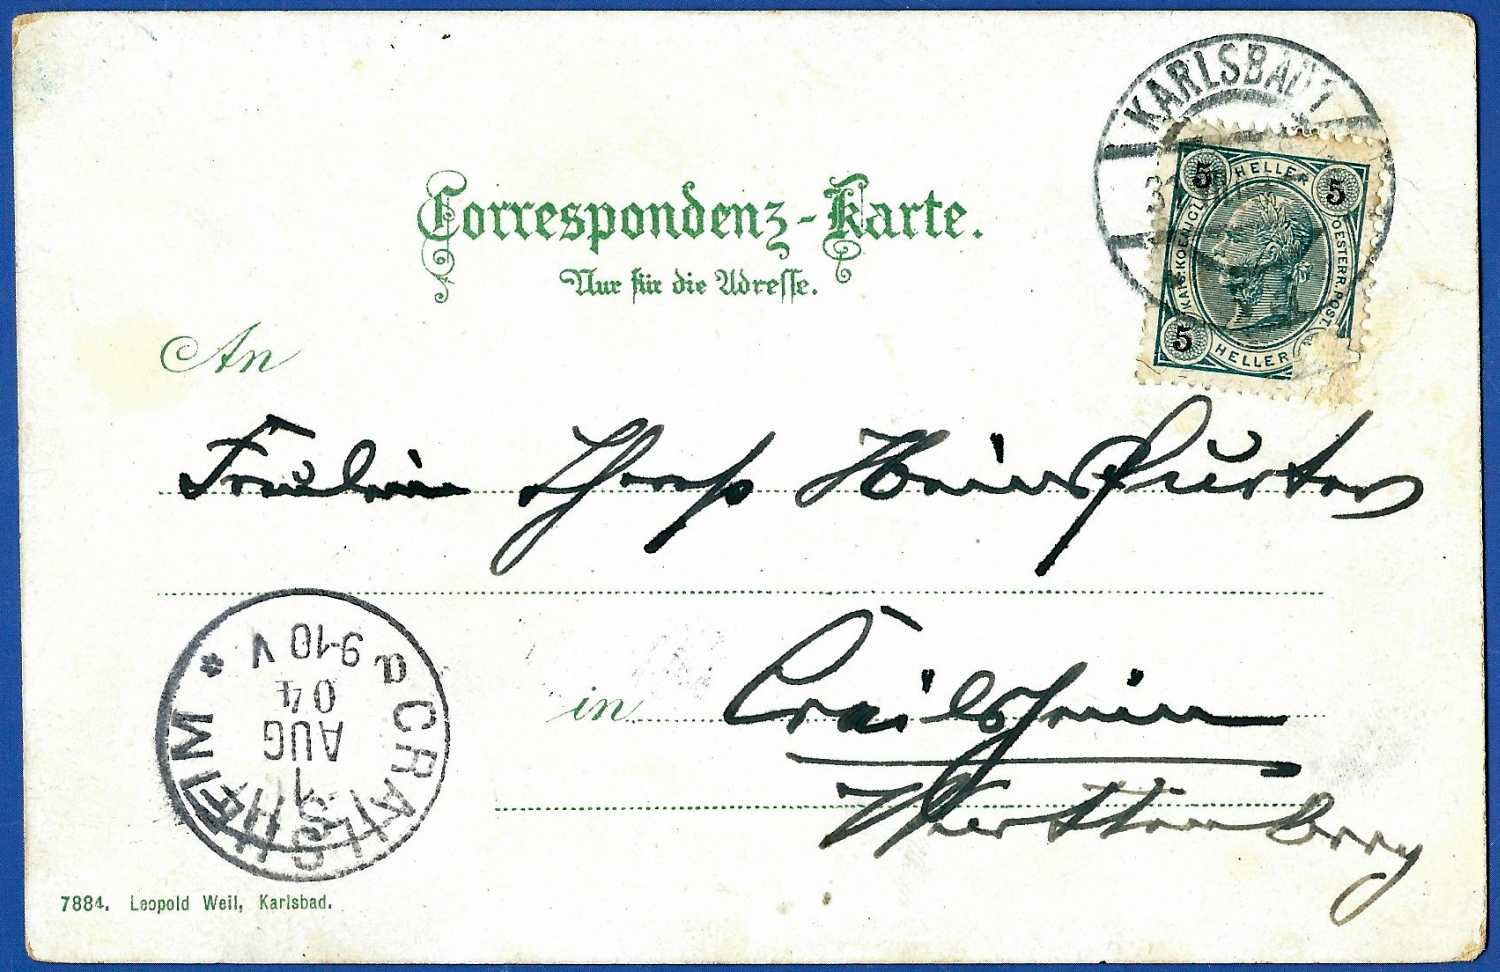 KARLSBAD 1
5 HELLER 5
KAIS. KOENIGL. OESTERR. POST
5 HELLER
Correspondenz-Karte.
Nur für die Adresse.
An
Fräulein Heinsfurter
in Crailsheim
Württemberg
CRAILSHEIM
1 AUG 04
9-10 V
a
7884. Leopold Weil, Karlsbad.